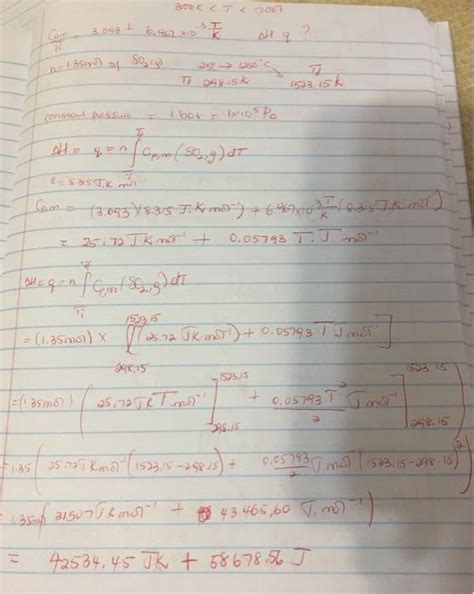 300K < T < 1700K
Cp,m/R = 3.093 + 6.967 × 10⁻³ T/K ΔH q ?
n = 1.35 mol of SO₂(g) 25°C → 1250°C
Ti 298.15K Tf 1523.15K
constant pressure = 1 bar = 1×10⁵ Pa
ΔH = q = n ∫ Cp,m (SO₂,g) dT
R = 8.315 J.K mol⁻¹
Cp,m = (3.093)(8.315 J.K mol⁻¹) + 6.967×10⁻³ T/K (8.315 J.K.mol⁻¹)
= 25.72 JK mol⁻¹ + 0.05793 T.J mol⁻¹
ΔH = q = n ∫ Cp,m (SO₂,g) dT
Ti
= (1.35mol) × ∫ 1523.15 298.15 [(25.72 JK mol⁻¹) + 0.05793 T J mol⁻¹]
= (1.35mol) ( 25.72 JK T.mol⁻¹ ] 1523.15 298.15 + 0.05793 T²/2 J mol⁻¹ ] 1523.15 298.15 )
= 1.35 ( 25.72 JK mol⁻¹ (1523.15 - 298.15) + 0.05793/2 J mol⁻¹ (1523.15 - 298.15)² )
= 1.35 ( 31507 JK mol⁻¹ + 43465.60 J. mol⁻¹ )
= 42534.45 JK + 58678.56 J